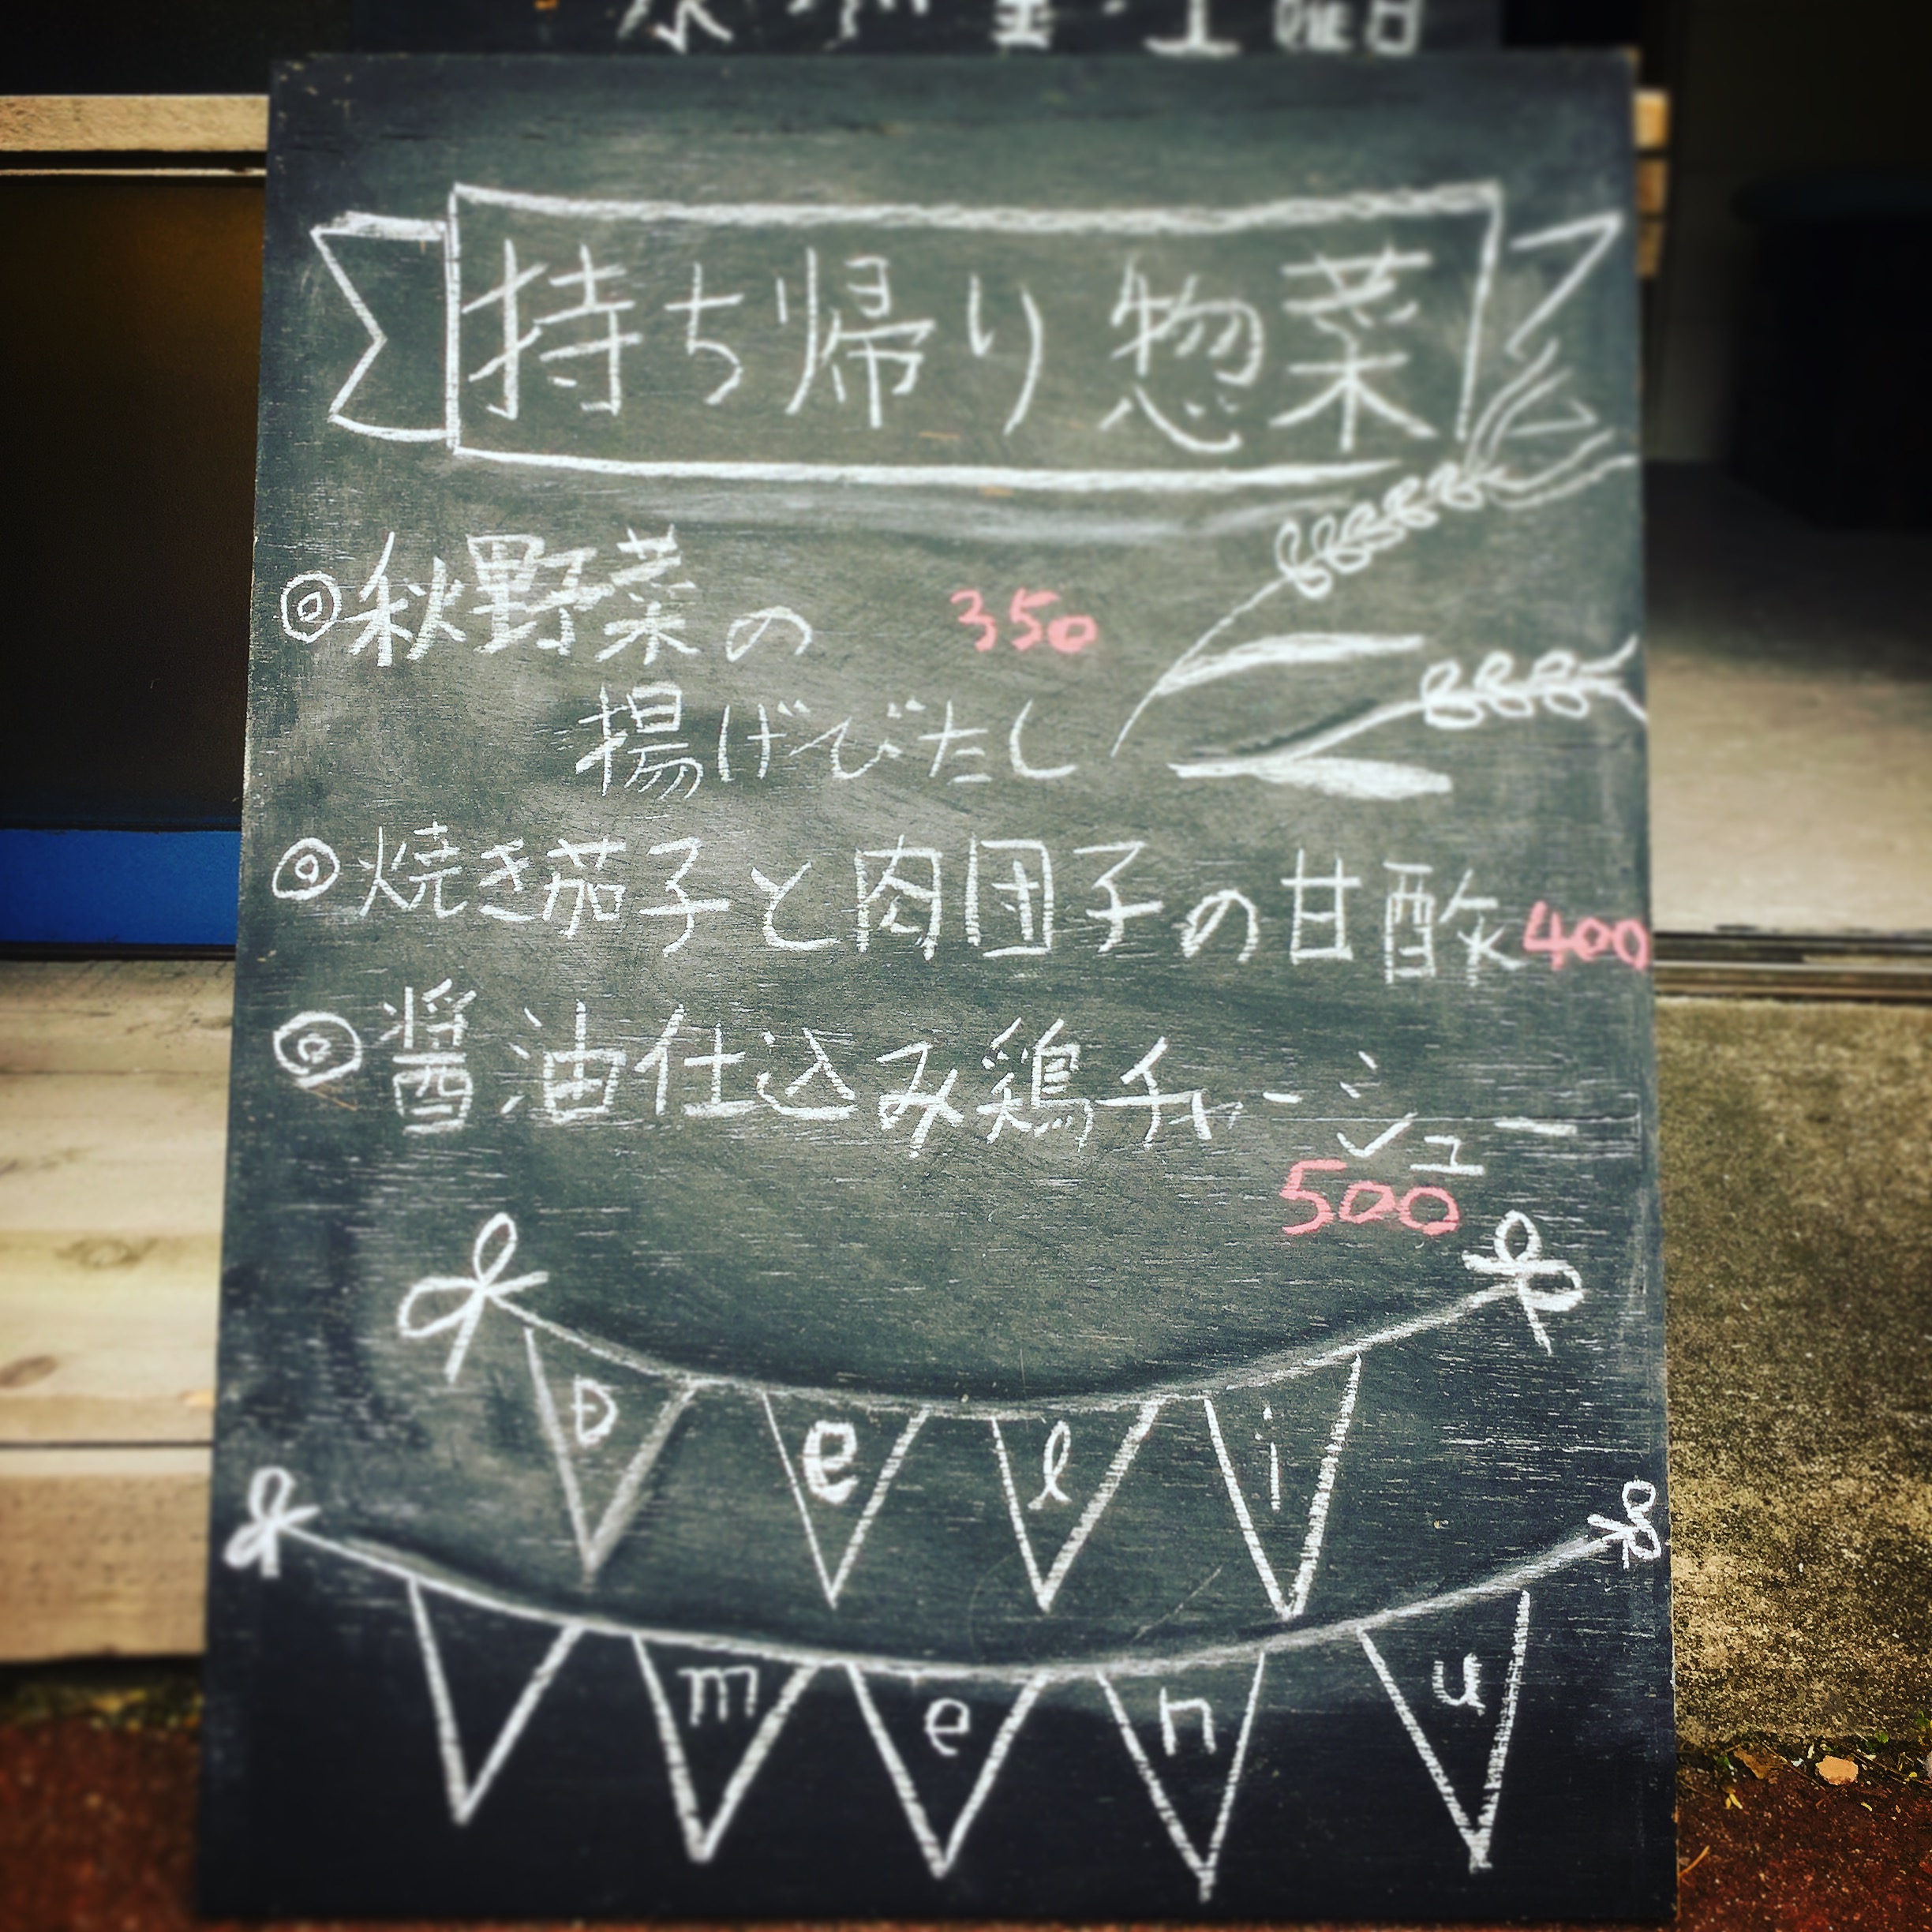 持ち帰り惣菜
◎秋野菜の 350
揚げびたし
◎焼き茄子と肉団子の甘酢400
◎醤油仕込み鶏チャーシュー
500
Deli
menu